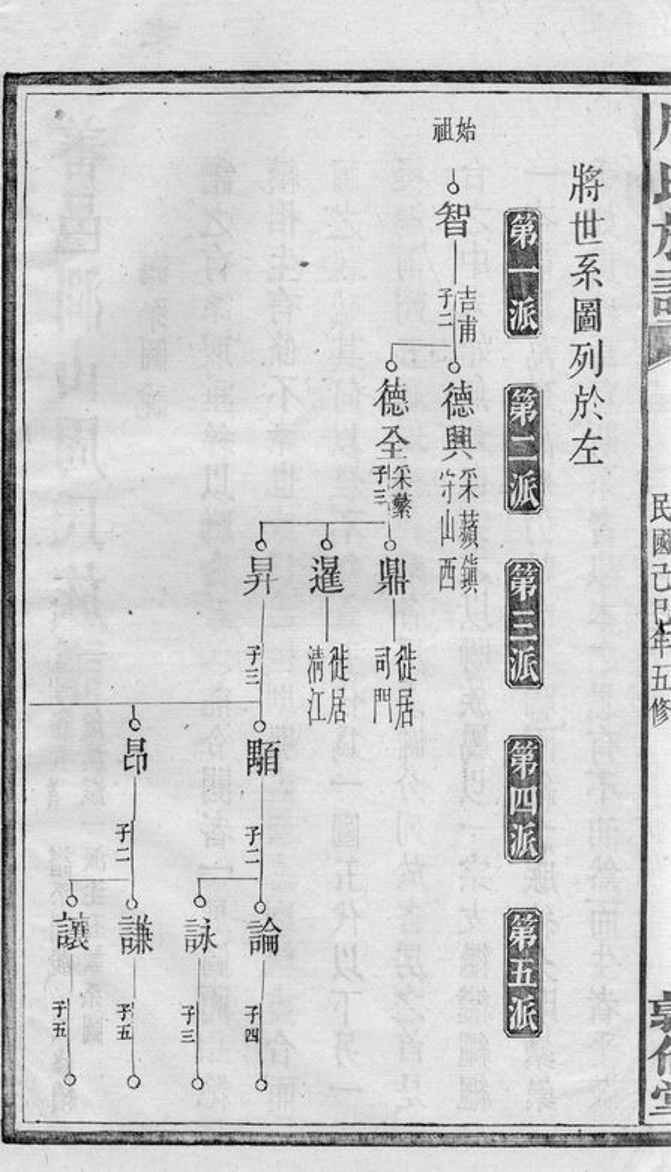 周氏族譜
民國己巳年五修
敦倫堂
將世系圖列於左
第一派
第二派
第三派
第四派
第五派
始祖
智
吉甫
子二
德興
采蘋鎮
守山西
德全
采蘩
子三
鼎
徙居
司門
暹
徙居
清江
昇
子三
顒
子二
昂
子二
論
子四
詠
子三
謙
子五
讓
子五